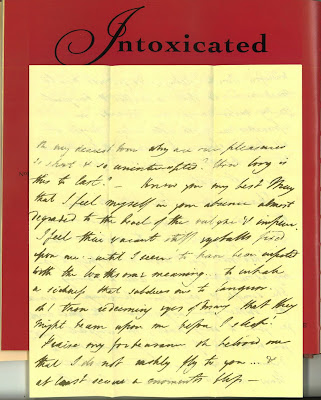 Intoxicated
Oh my dearest love why are our pleasures
so short & so uninterrupted? How long is
this to last? – Know you my best Mary
that I feel myself in your absence almost
degraded to the level of the vulgar & impure.
I feel their vacant stiff eyeballs fixed
upon me – until I seem to have been infected
with the loathsome meaning – to inhale
a sickness that subdues me to languor.
Oh! those redeeming eyes of Mary that they
might beam upon me before I sleep!
Praise my forbearance oh beloved one
that I do not rashly fly to you ... &
at least secure a moments bliss –